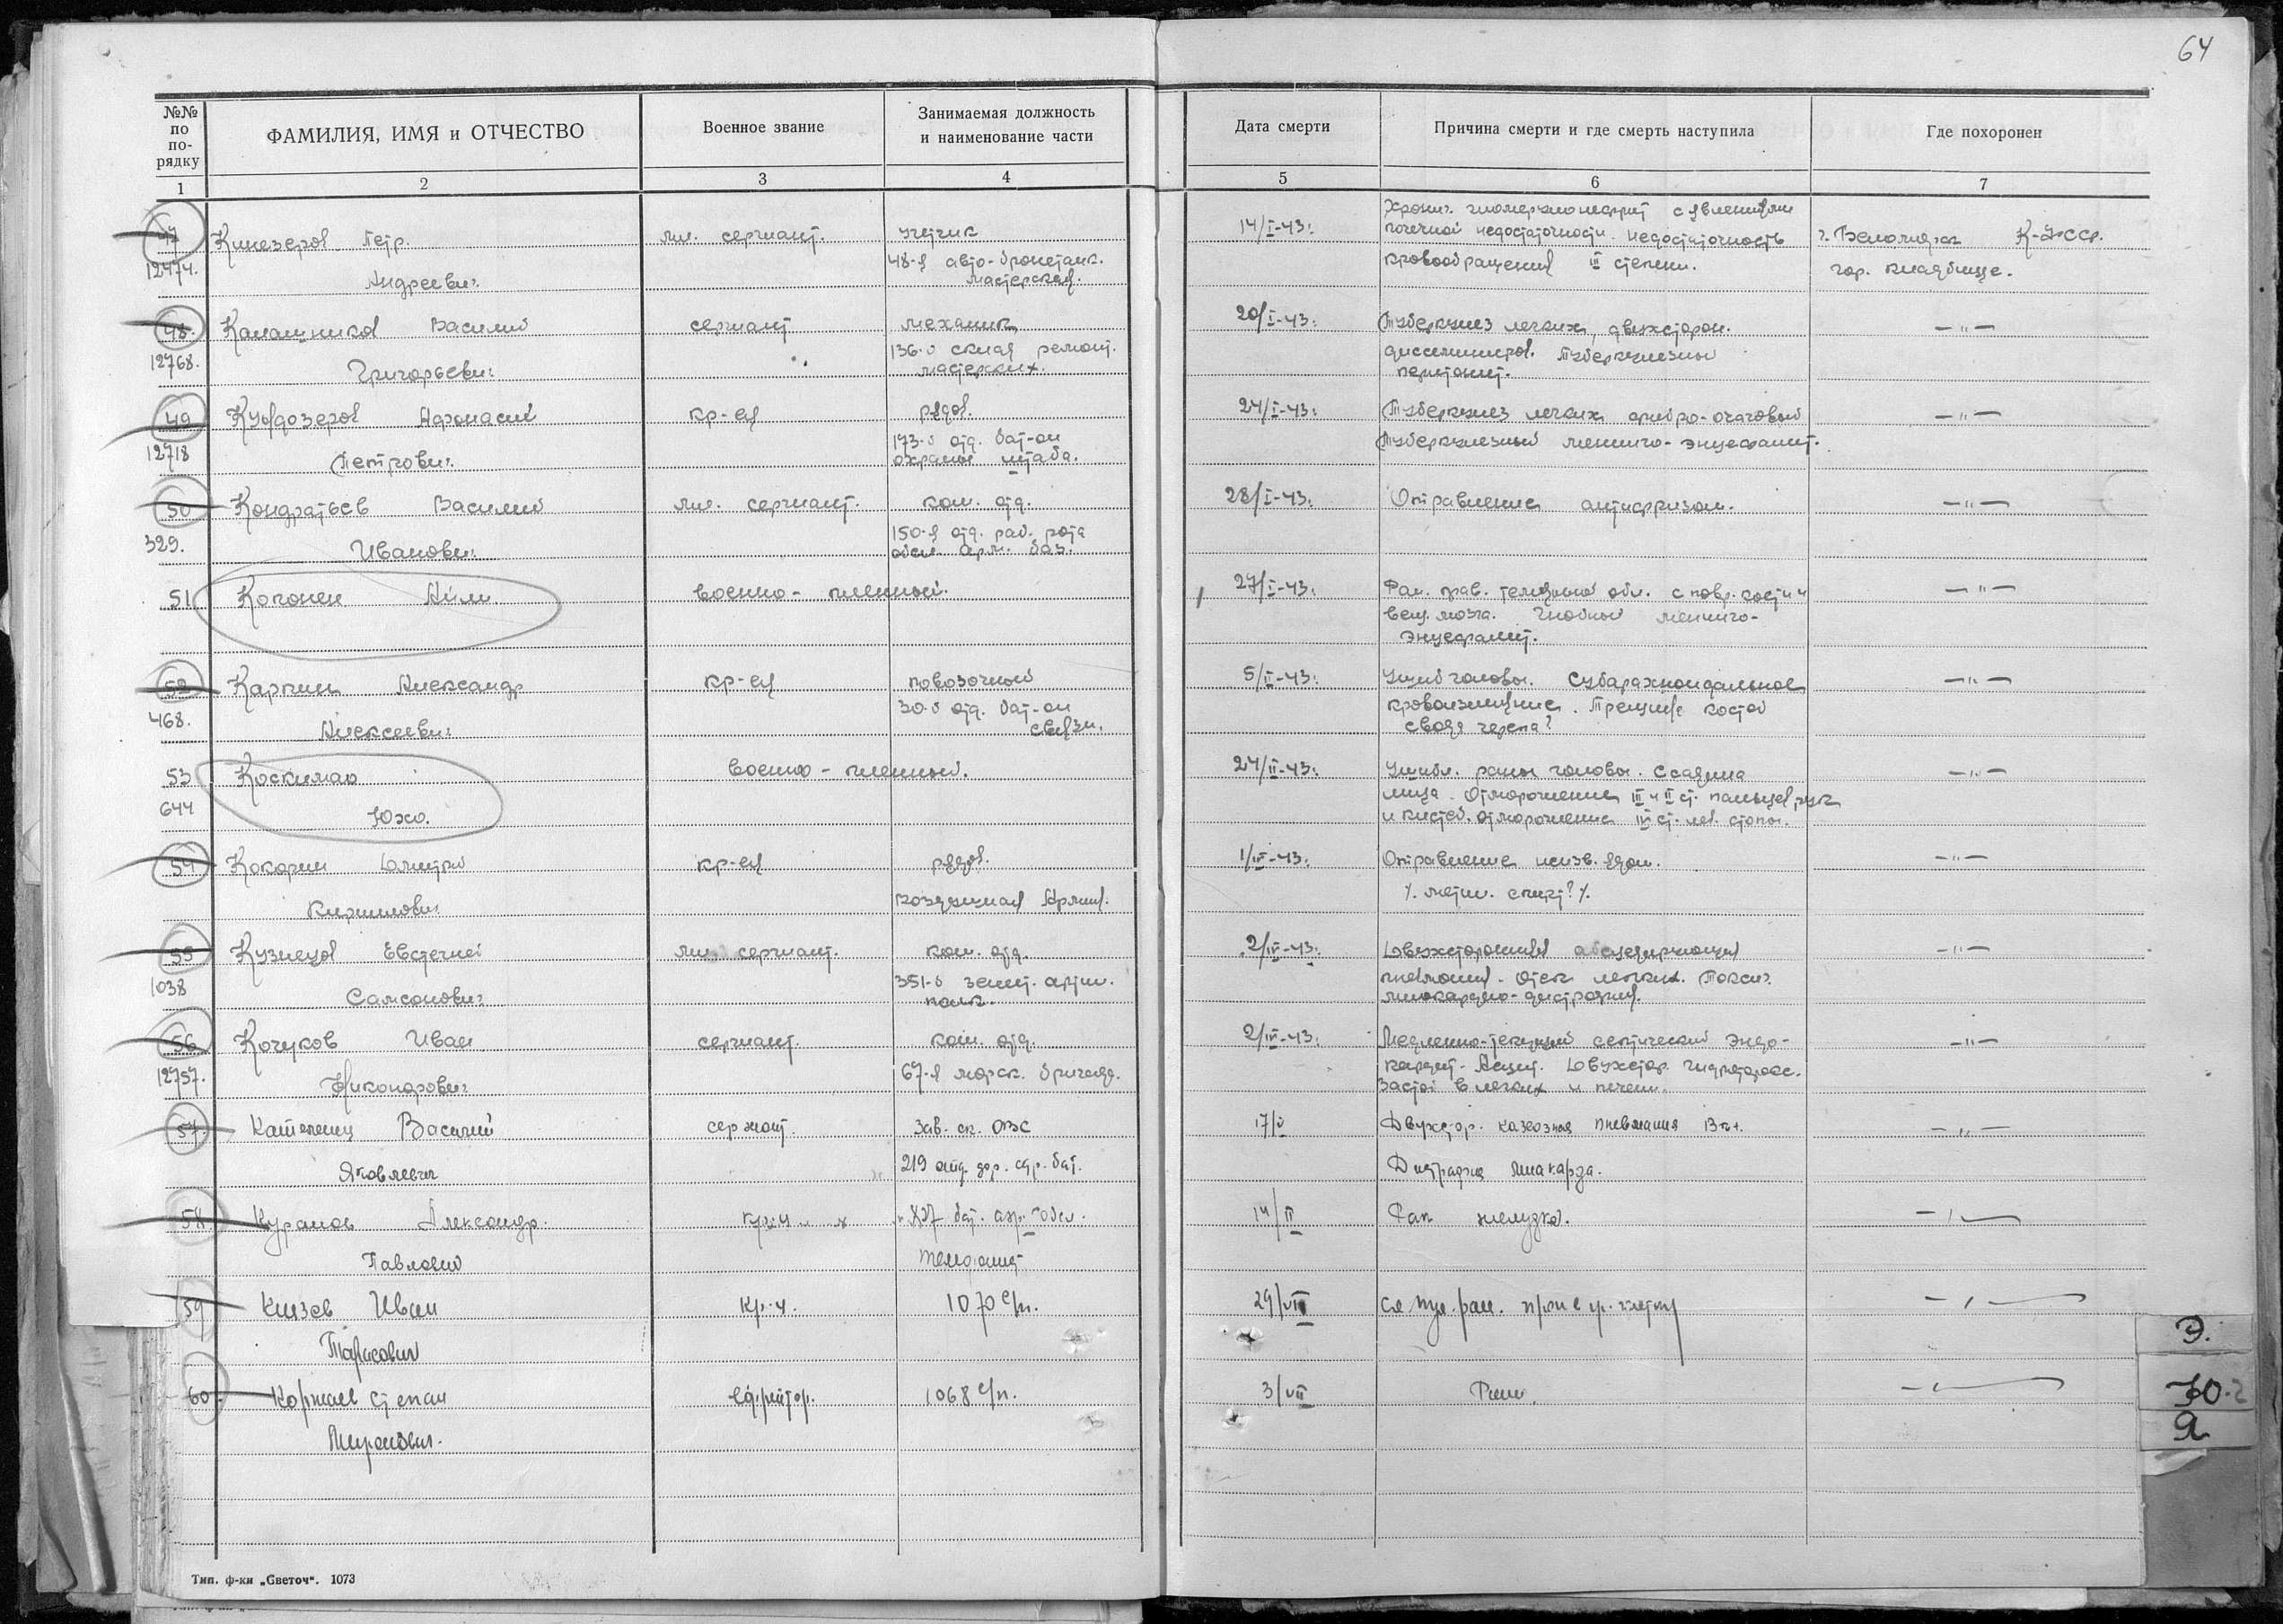 64
№№ по по-рядку
ФАМИЛИЯ, ИМЯ и ОТЧЕСТВО
Военное звание
Занимаемая должность и наименование части
Дата смерти
Причина смерти и где смерть наступила
Где похоронен
1 2 3 4 5 6 7
47 Кинезеров Петр. мл. сержант. учетчик 14/I-43г. Хронич. гломерулонефрит с явлениями
12474. Андреевич 48-я авто-бронетанк. мастерская. почечной недостаточности. Недостаточность кровообращения III степени. г. Беломорск К-ФССР. гор. кладбище.
48. Калашников Василий сержант механик 20/I-43г. Туберкулез легких, двухсторон. —"—
12768. Григорьевич 136-й ремонт. мастерских. диссеминиров. Туберкулезный перитонит.
49 Афонасий кр-ец рядов. 24/I-43г. Туберкулез легких фибро-очаговый —"—
12718 Петрович. 173-й отд. бат-он охраны штаба. Туберкулезный менинго-энцефалит.
50 Кондратьев Василий мл. сержант. ком. отд. 28/I-43г. Отравление антифризом. —"—
329. Иванович 150-я отд. раб. рота обсл. арм. баз.
51 Копонен Айли военно-пленный. 27/I-43г. Ран. прав. теменной обл. с повр. кости и —"—
вещ. мозга. Гнойный менинго-
энцефалит.
52 Карпин Александр кр-ец повозочный 5/II-43г. Ушиб головы. Субарахноидальное —"—
468. Алексеевич 30-й отд. бат-он связи. кровоизлияние. Трещина костей
свода черепа?
53 Коскимао военно-пленный. 24/II-43г. Ушибл. раны головы. Ссадина —"—
644 Юхо. лица. Отморожение III и II ст. пальцев рук
и кистей. Отморожение III ст. лев. стопы.
54 Кокорин Дмитрий кр-ец рядов. 1/III-43г. Отравление неизв. ядом. —"—
Кириллович Армия. /. метил. спирт? /.
55 Кузнецов Евстегней мл. сержант. ком. отд. 2/III-43г. Двухсторонняя абсцедирующая —"—
1038 Самсонович 351-й зенит. артил. полк. пневмония. Отек легких. Токсич.
миокардио-дистрофия.
56 Кочуков Иван сержант. ком. отд. 2/III-43г. Медленно-текущий септический эндо- —"—
12757. Никонорович 67-я морск. бригада. кардит. Асцит. Двухстор. гидроторакс.
Застой в легких и печени.
57. Василий сержант. Зав. ск. ОВС 17/ Двухстор. казеозная пневмония —"—
Яковлевич 219 отд. дор. стр. бат. Дистрофия миокарда.
58. Куранов Александр. 827 бат. аэр. обсл. 14/II Рак желудка. —"—
Павлович
59 Князев Иван кр-ц. 1070 с/п. 29/VII сл. пул. ран. гр. клетки —"—
Тарасович
60. Степан ефрейтор. 1068 с/п. 3/VII —"—
Миронович.
Э.
Ю-2
Я
Тип. ф-ки „Светоч“. 1073